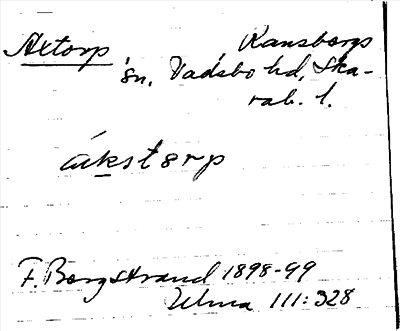 Axtorp Ransbergs
sn, Vadsbo hd, Ska-
rab. l.
ákstorp
F. Bergstrand 1898-99
Ulma 111:328